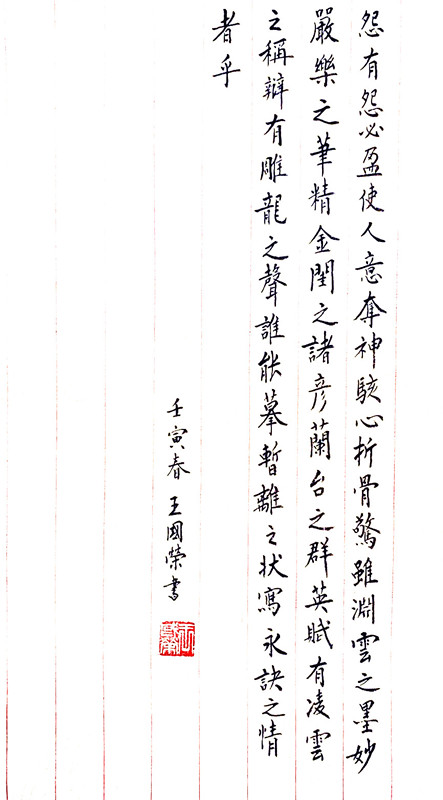 怨有怨必盈使人意奪神駭心折骨驚雖淵雲之墨妙
嚴樂之筆精金閨之諸彦蘭台之群英賦有凌雲
之稱辯有雕龍之聲誰能摹暫離之状寫永訣之情
者乎
壬寅春王國榮書